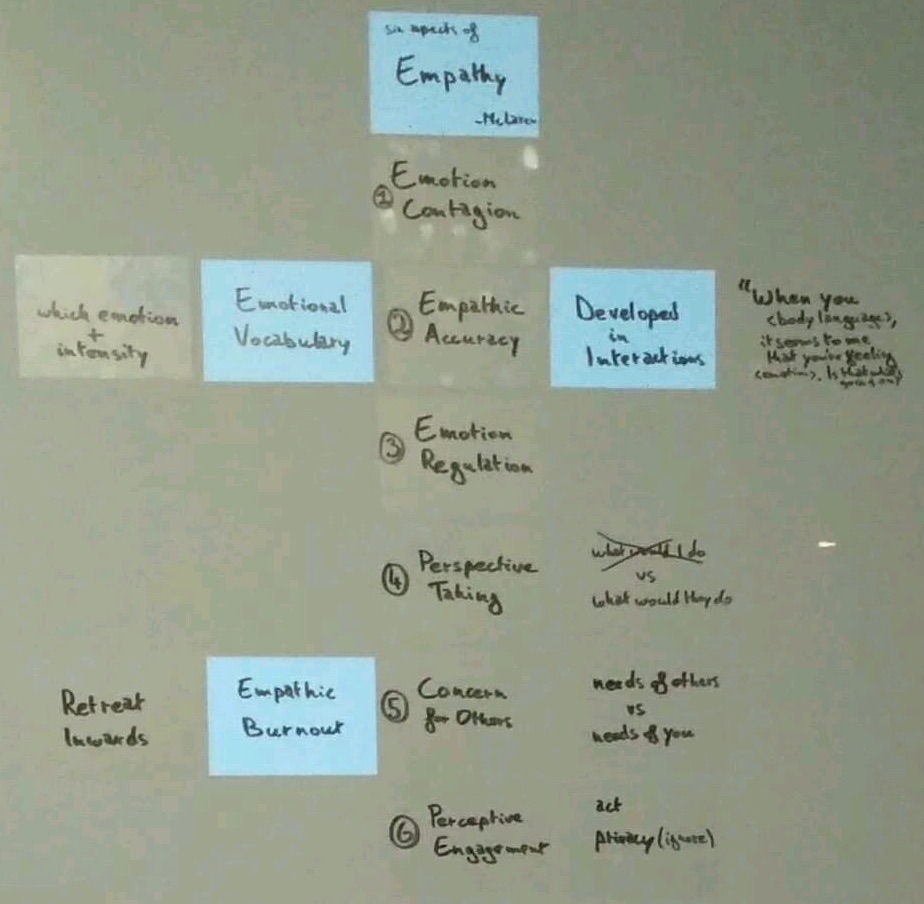 six aspects of
Empathy
-McLaren
① Emotion
Contagion
which emotion
+
intensity
Emotional
Vocabulary
② Empathic
Accuracy
Developed
in
Interactions
"When you
<body language>,
it seems to me
that you're feeling
<emotion>. Is that what's
going on?
③ Emotion
Regulation
④ Perspective
Taking
what would I do
vs
what would they do
Retreat
Inwards
Empathic
Burnout
⑤ Concern
for Others
needs of others
vs
needs of you
⑥ Perceptive
Engagement
act
privacy (ignore)